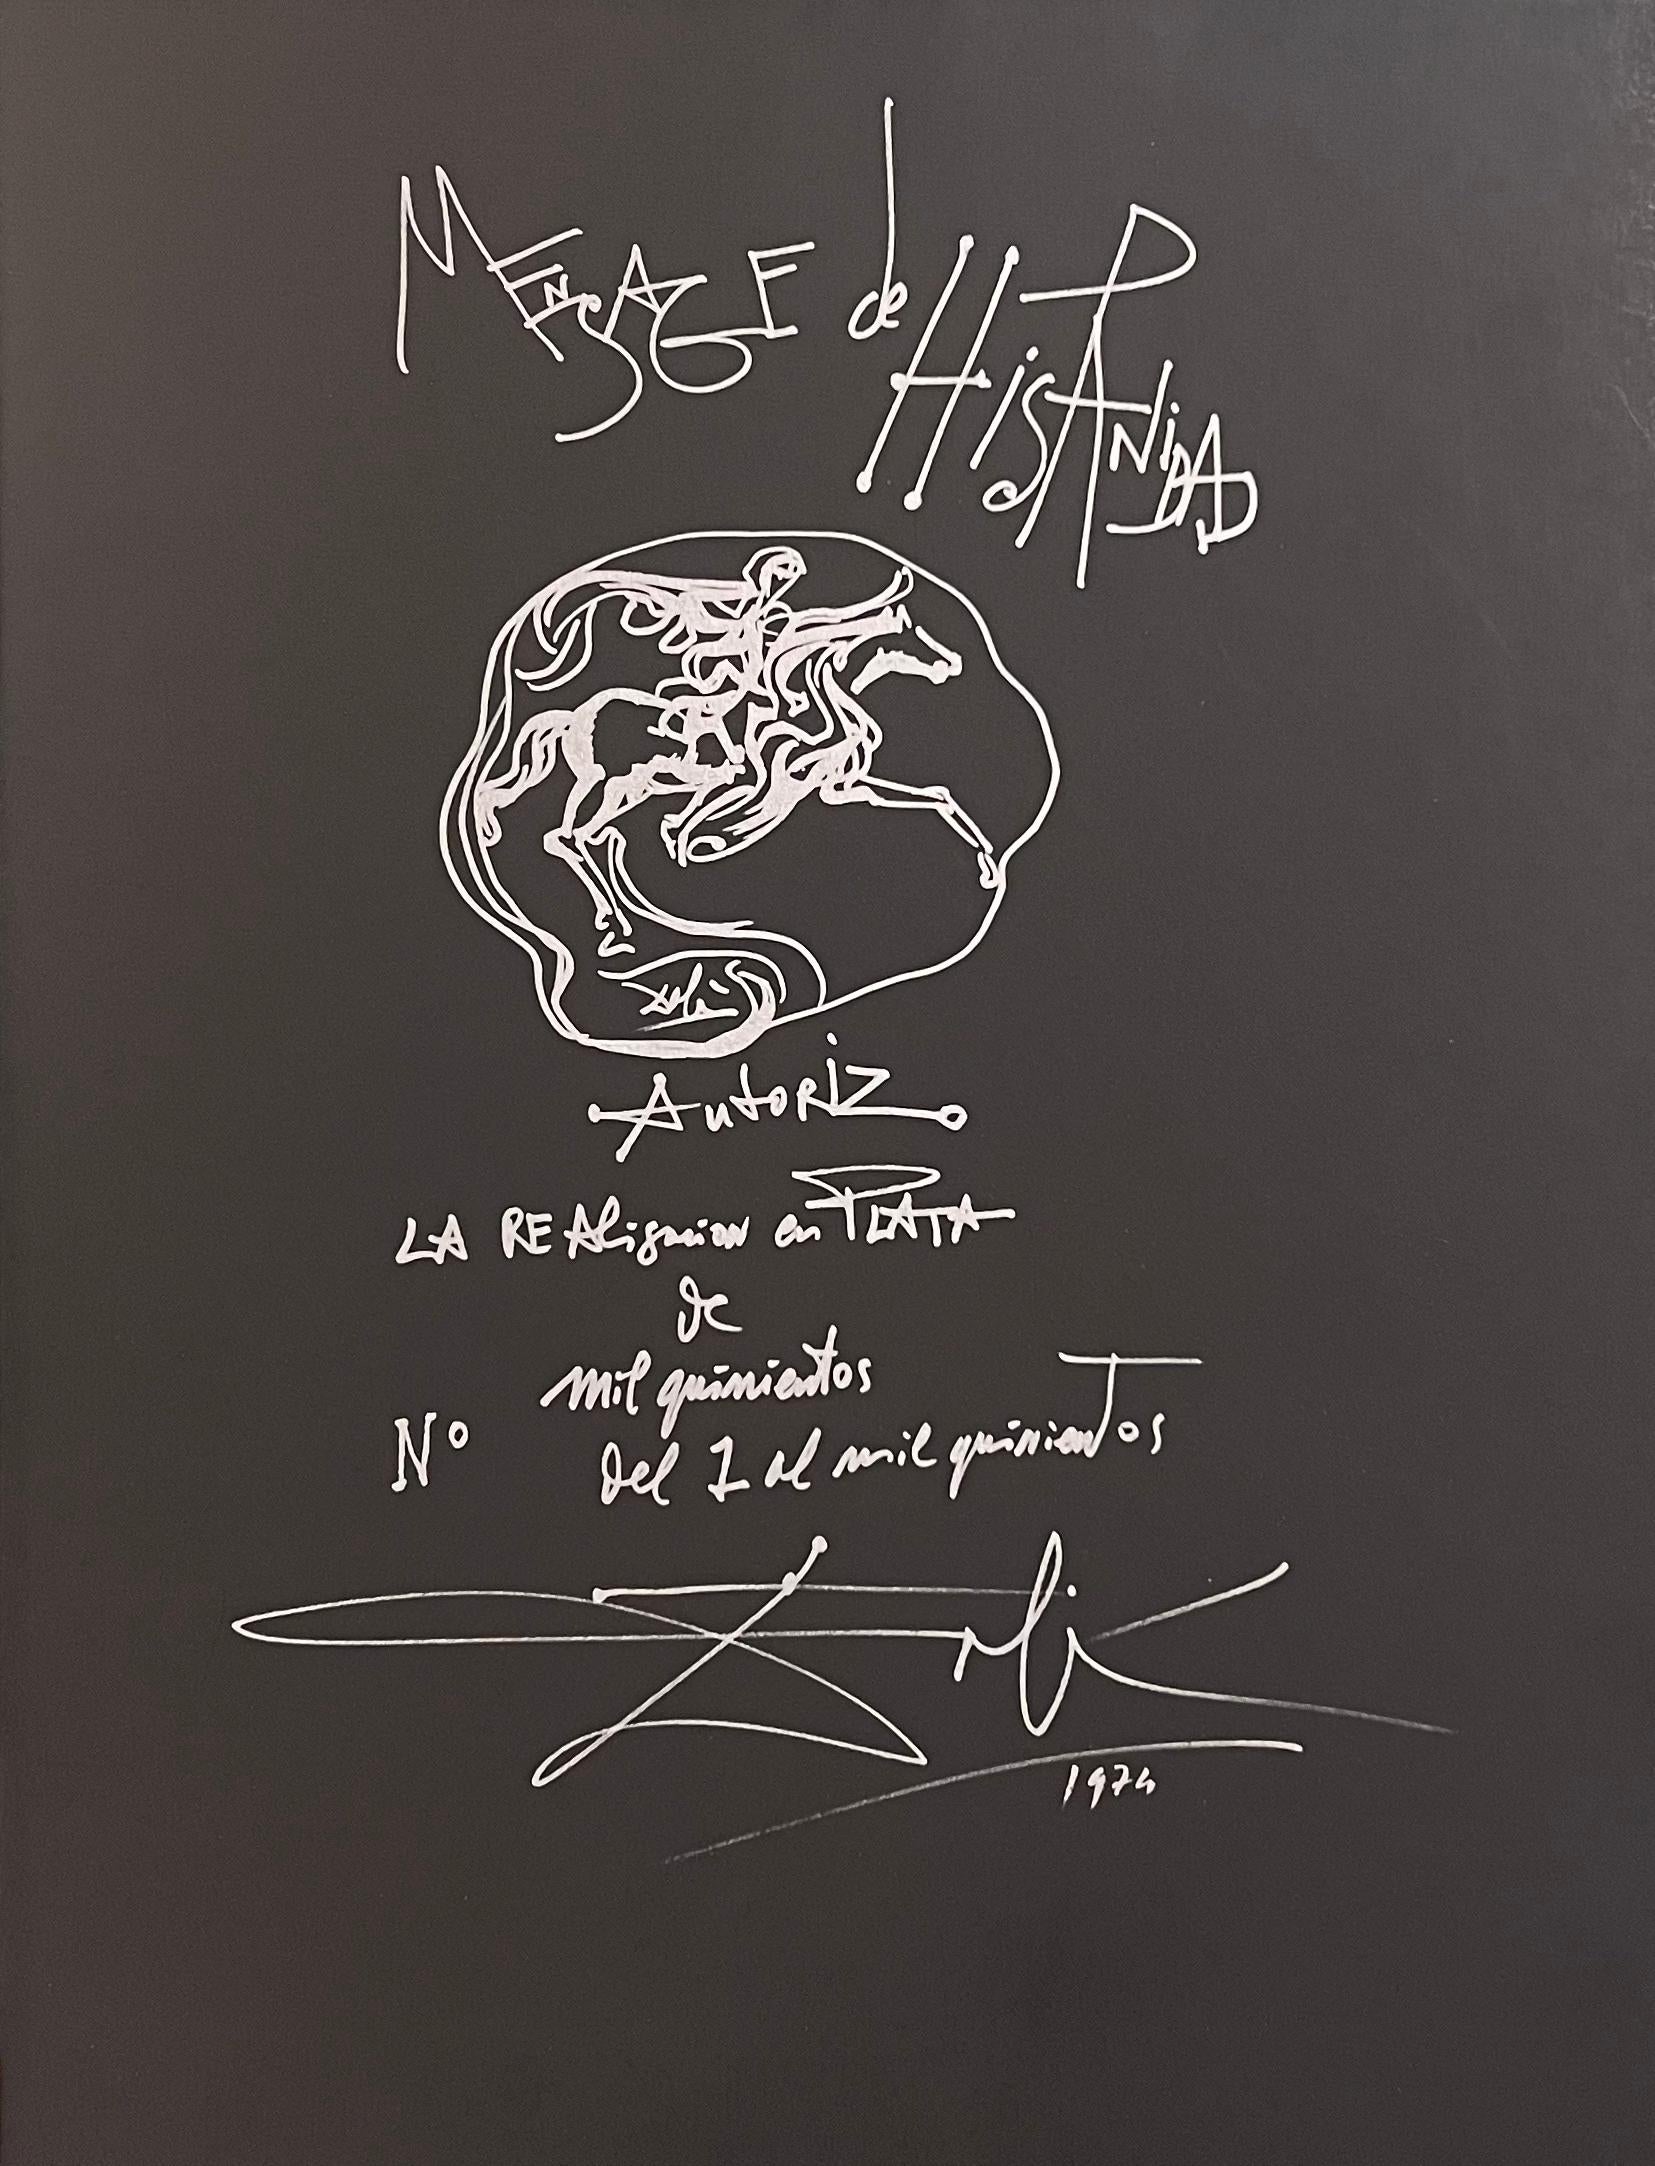 MENSAGE de HISPANIDAD
Dalí
Autoriz
LA REAlisacion en PLATA
de
mil quinientos
Nº del 1 al mil quinientos
Dalí
1974